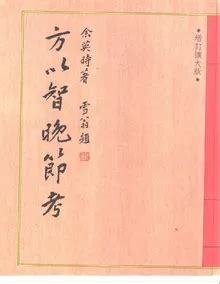 增訂擴大版
余英時著 雪翁題
方以智晚節考